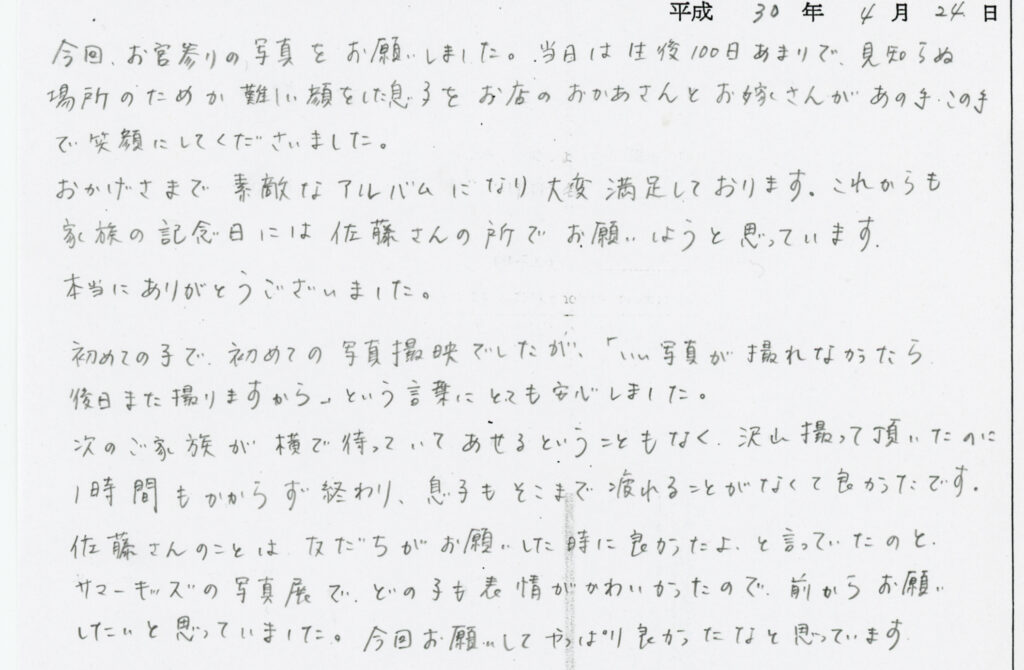 平成 30 年 4 月 24 日
今回、お宮参りの写真をお願いしました。当日は生後100日あまりで、見知らぬ
場所のためか難しい顔をした息子をお店のおかあさんとお嫁さんがあの手、この手
で笑顔にしてくださいました。
おかげさまで素敵なアルバムになり大変満足しております。これからも
家族の記念日には佐藤さんの所でお願いしようと思っています。
本当にありがとうございました。
初めての子で、初めての写真撮映でしたが、「いい写真が撮れなかったら
後日また撮りますから」という言葉にとても安心しました。
次のご家族が横で待っていてあせるということもなく、沢山撮って頂いたのに
1時間もかからず終わり、息子もそこまで疲れることがなくて良かったです。
佐藤さんのことは、友だちがお願いした時に良かったよ、と言っていたのと、
サマーキッズの写真展で、どの子も表情がかわいかったので、前からお願い
したいと思っていました。今回お願いしてやっぱり良かったなと思っています